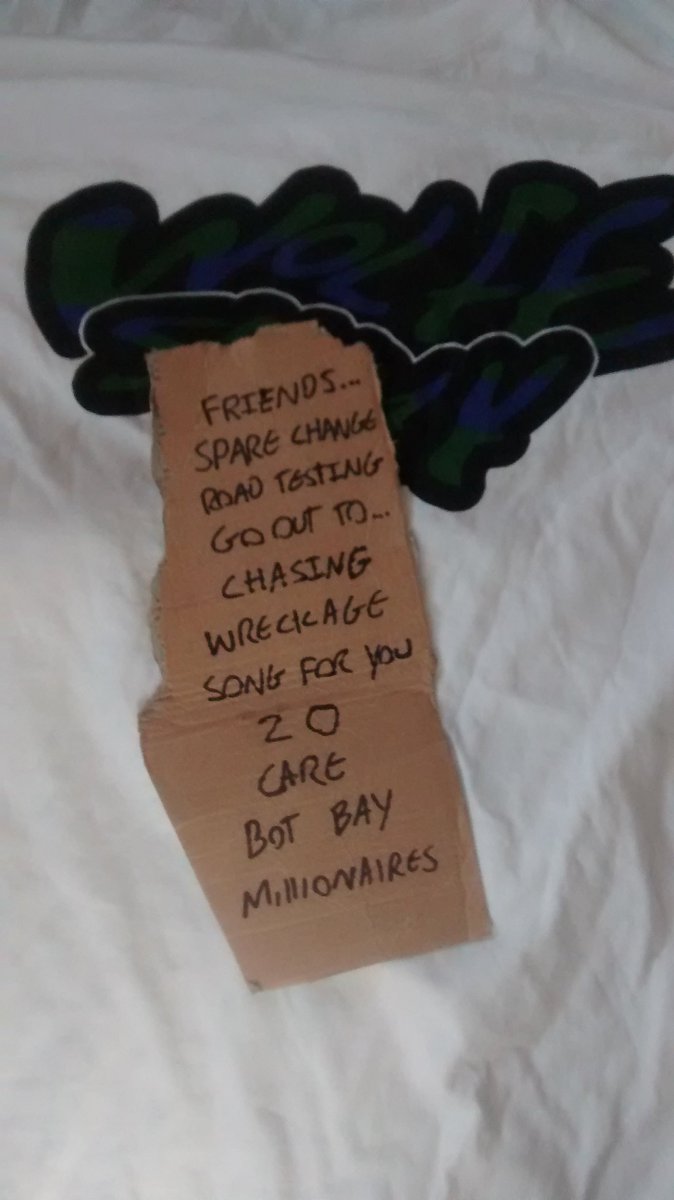 WOLFE
FRIENDS...
SPARE CHANGE
ROAD TESTING
GO OUT TO...
CHASING
WRECKAGE
SONG FOR YOU
20
CARE
BOT BAY
MILLIONAIRES